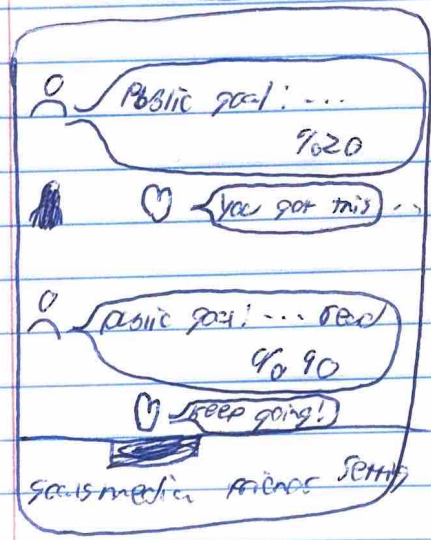 Public goal: ...
%20
you got this ..
public goal! ... read
% 90
keep going!
goals media friends Setting